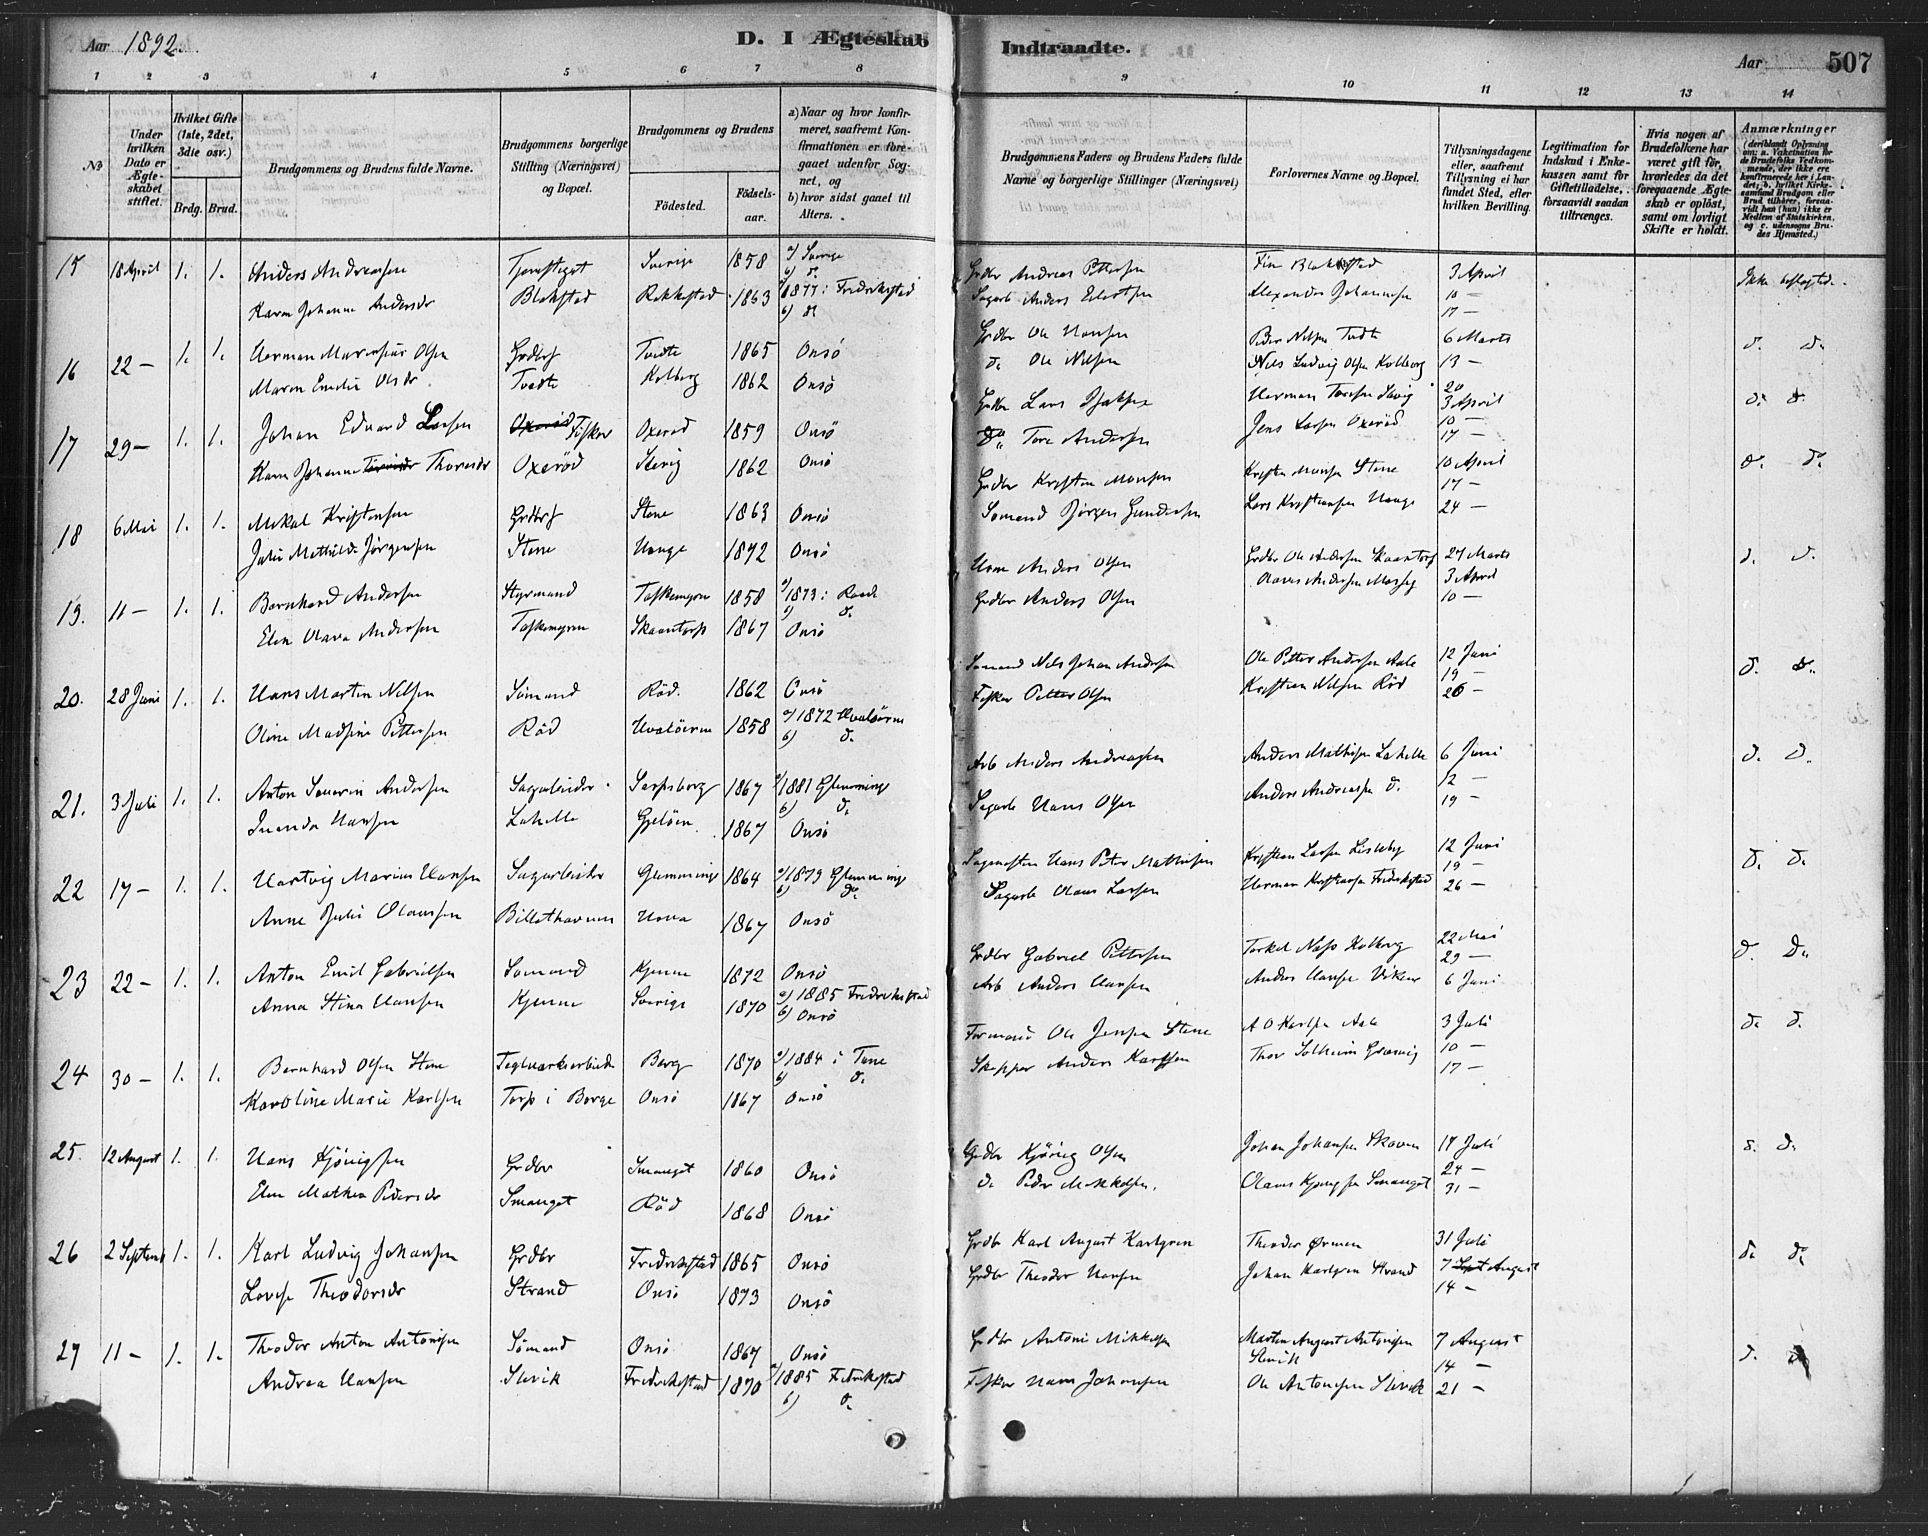 Aar 1892.
D. I Ægteskab Indtraadte.
Aar 507
1 2 3 4 5 6 7 8 9 10 11 12 13 14
No
Under hvilken Dato er Ægteskabet stiftet.
Hvilket Gifte (1ste, 2det, 3die osv.)
Brdg. Brud.
Brudgommens og Brudens fulde Navne.
Brudgommens borgerlige Stilling (Næringsvei) og Bopæl.
Brudgommens og Brudens
Fødested.
Fødselsaar.
a) Naar og hvor konfirmeret, saafremt Konfirmationen er foregaaet udenfor Sognet, og
b) hvor sidst gaaet til Alters.
Brudgommens Faders og Brudens Faders fulde Navne og borgerlige Stillinger (Næringsvei)
Forlovernes Navne og Bopæl.
Tillysningsdagene eller, saafremt Tillysning ei har fundet Sted, efter hvilken Bevilling.
Legitimation for Indskud i Enkekassen samt for Giftetilladelse, forsaavidt saadan tiltrænges.
Hvis nogen af Brudefolkene har været gift før, hvorledes da det foregaaende Ægteskab er opløst, samt om lovligt Skifte er holdt.
Anmærkninger
15 18 April 1. 1. Anders Andreassen Sverige 1858 a) Sverige b) d. Grdbr Andreas Pettersen 3 April Ikke beslægtede.
Karen Johanne Andersdr Blakstad Rakkestad 1863 1877: Fredrikstad b) d. Sagarb Anders Alexander Johannesen 10 —
17 —
16 22 — 1. 1. Herman Marensius Olsen Tvedte 1865 Onsö Grdbr Ole Hansen Peder Nilsen Tvedt 6 Marts d. d.
Maren Emelie Olsdr Tvedte Kolberg 1862 Onsö d. Ole Nilsen Nils Ludvig Olsen Kolberg 13 —
20
17 29 — 1. 1. Johan Edvard Larsen Fisker Oxerød 1859 Onsö Grdbr Lars Herman 3 April d. d.
Karen Johanne Thoresdr Oxerød Slevig 1862 Onsö Tore Andersen Jens Larsen Oxerød 10 —
17 —
18 6 Mai 1. 1. Mikal Kristensen Stene 1863 Onsö Grdbr Kristen Monsen Kristen Monsen Stene 10 April d. d.
17 —
Julie Mathilde Jørgensen Stene Hauge 1872 Onsö Sømand Jörgen Gundersen Lars Kristiansen Hauge 24 —
19. 11 — 1. 1. Bernhard Andersen Styrmand 1858 a) 1873: Raade b) d. Anders Olsen Grdbr Ole Andersen Skaantorp 27 Marts d. d.
3 April
Elen Olava Andersen Skaantorp 1867 Onsö Grdbr Anders Olsen 10 —
20. 28 Juni 1. 1. Hans Martin Nilsen Sømand Rød. 1862 Onsö Sømand Nils Johan Andersen Ole Petter Andersen Aale 12 Juni d. d.
19 —
Oline Madsine Pettersen Rød Hvaløerne 1858 a) 1872 Hvaløerne b) d. Fisker Petter Olsen Kristian Nilsen Rød 26 —
21. 3 Juli 1. 1. Anton Severin Andersen Sagarbeider Sarpsborg 1867 a) 1881 Glemminge b) d. Arb Anders Andreassen Anders Mathisen Lahelle 6 Juni d. d.
12 —
Hansen Lahelle Gjeløen 1867 Onsö Sagarb Hans Olsen Anders Andreassen d. 19 —
22 17 — 1. 1. Hartvig Marius Hansen Sagarbeider Glemminge 1864 a) 1879 Glemminge b) d. Sagmester Hans Peter Mathisen Kristian Larsen Lisleby 12 Juni d. d.
19 —
Anne Julie Olaussen 1867 Onsö Sagarb Olaus Larsen Herman Kristiansen Fredrikstad 26 —
23 22 — 1. 1. Anton Emil Gabrielsen Sømand Kjenne 1872 Onsö Grdbr Gabriel Pettersen Torkel Næss Kolberg 22 Mai d. d.
29 —
Anna Stina Hansen Kjenne Sverige 1870 a) 1885 Fredrikstad b) Onsö Arb Anders Hansen Anders Hansen 6 Juni
24 30 — 1. 1. Bernhard Olsen Stene Teglværksarbeider Berg 1870 a) 1884 i Tune b) d. Formand Ole Jensen Stene A O Karlsen Aale 3 Juli d. d.
10 —
Karoline Marie Karlsen Torp i Borge Onsö 1867 Onsö Skipper Anders Karlsen Thor Solheim Græsvig 17 —
25. 12 August 1. 1. Hans Kjønigsen Grdbr Smauget 1860 Onsö Grdbr Kjönig Olsen Johan Johansen Skaaren 17 Juli d. d.
24 —
Elen Mathea Pedersdr Smauget Rød 1868 Onsö d. Peder Mikkelsen. Olaus Kjønigsen Smauget 31 —
26 2 Septemb 1. 1. Karl Ludvig Johansen Grdbr Fredrikstad 1865 Onsö Grdbr Karl August Karlgren Theodor Ørmen 31 Juli d. d.
Lovise Theodorsdr Strand Onsö 1873 Onsö Grdbr Theodor Hansen Johan Karlgren Strand 7 August
14 —
27 11 — 1. 1. Theodor Anton Antonisen Sømand Onsö 1867 Onsö Grdbr Antoni Mikkelsen Martin August Antonisen Slevik 7 August d. d.
14 —
Andrea Hansen Slevik Fredrikstad 1870 a) 1885 Fredrikstad b) d. Fisker Hans Johansen Ole Antonisen Slevik 21 —